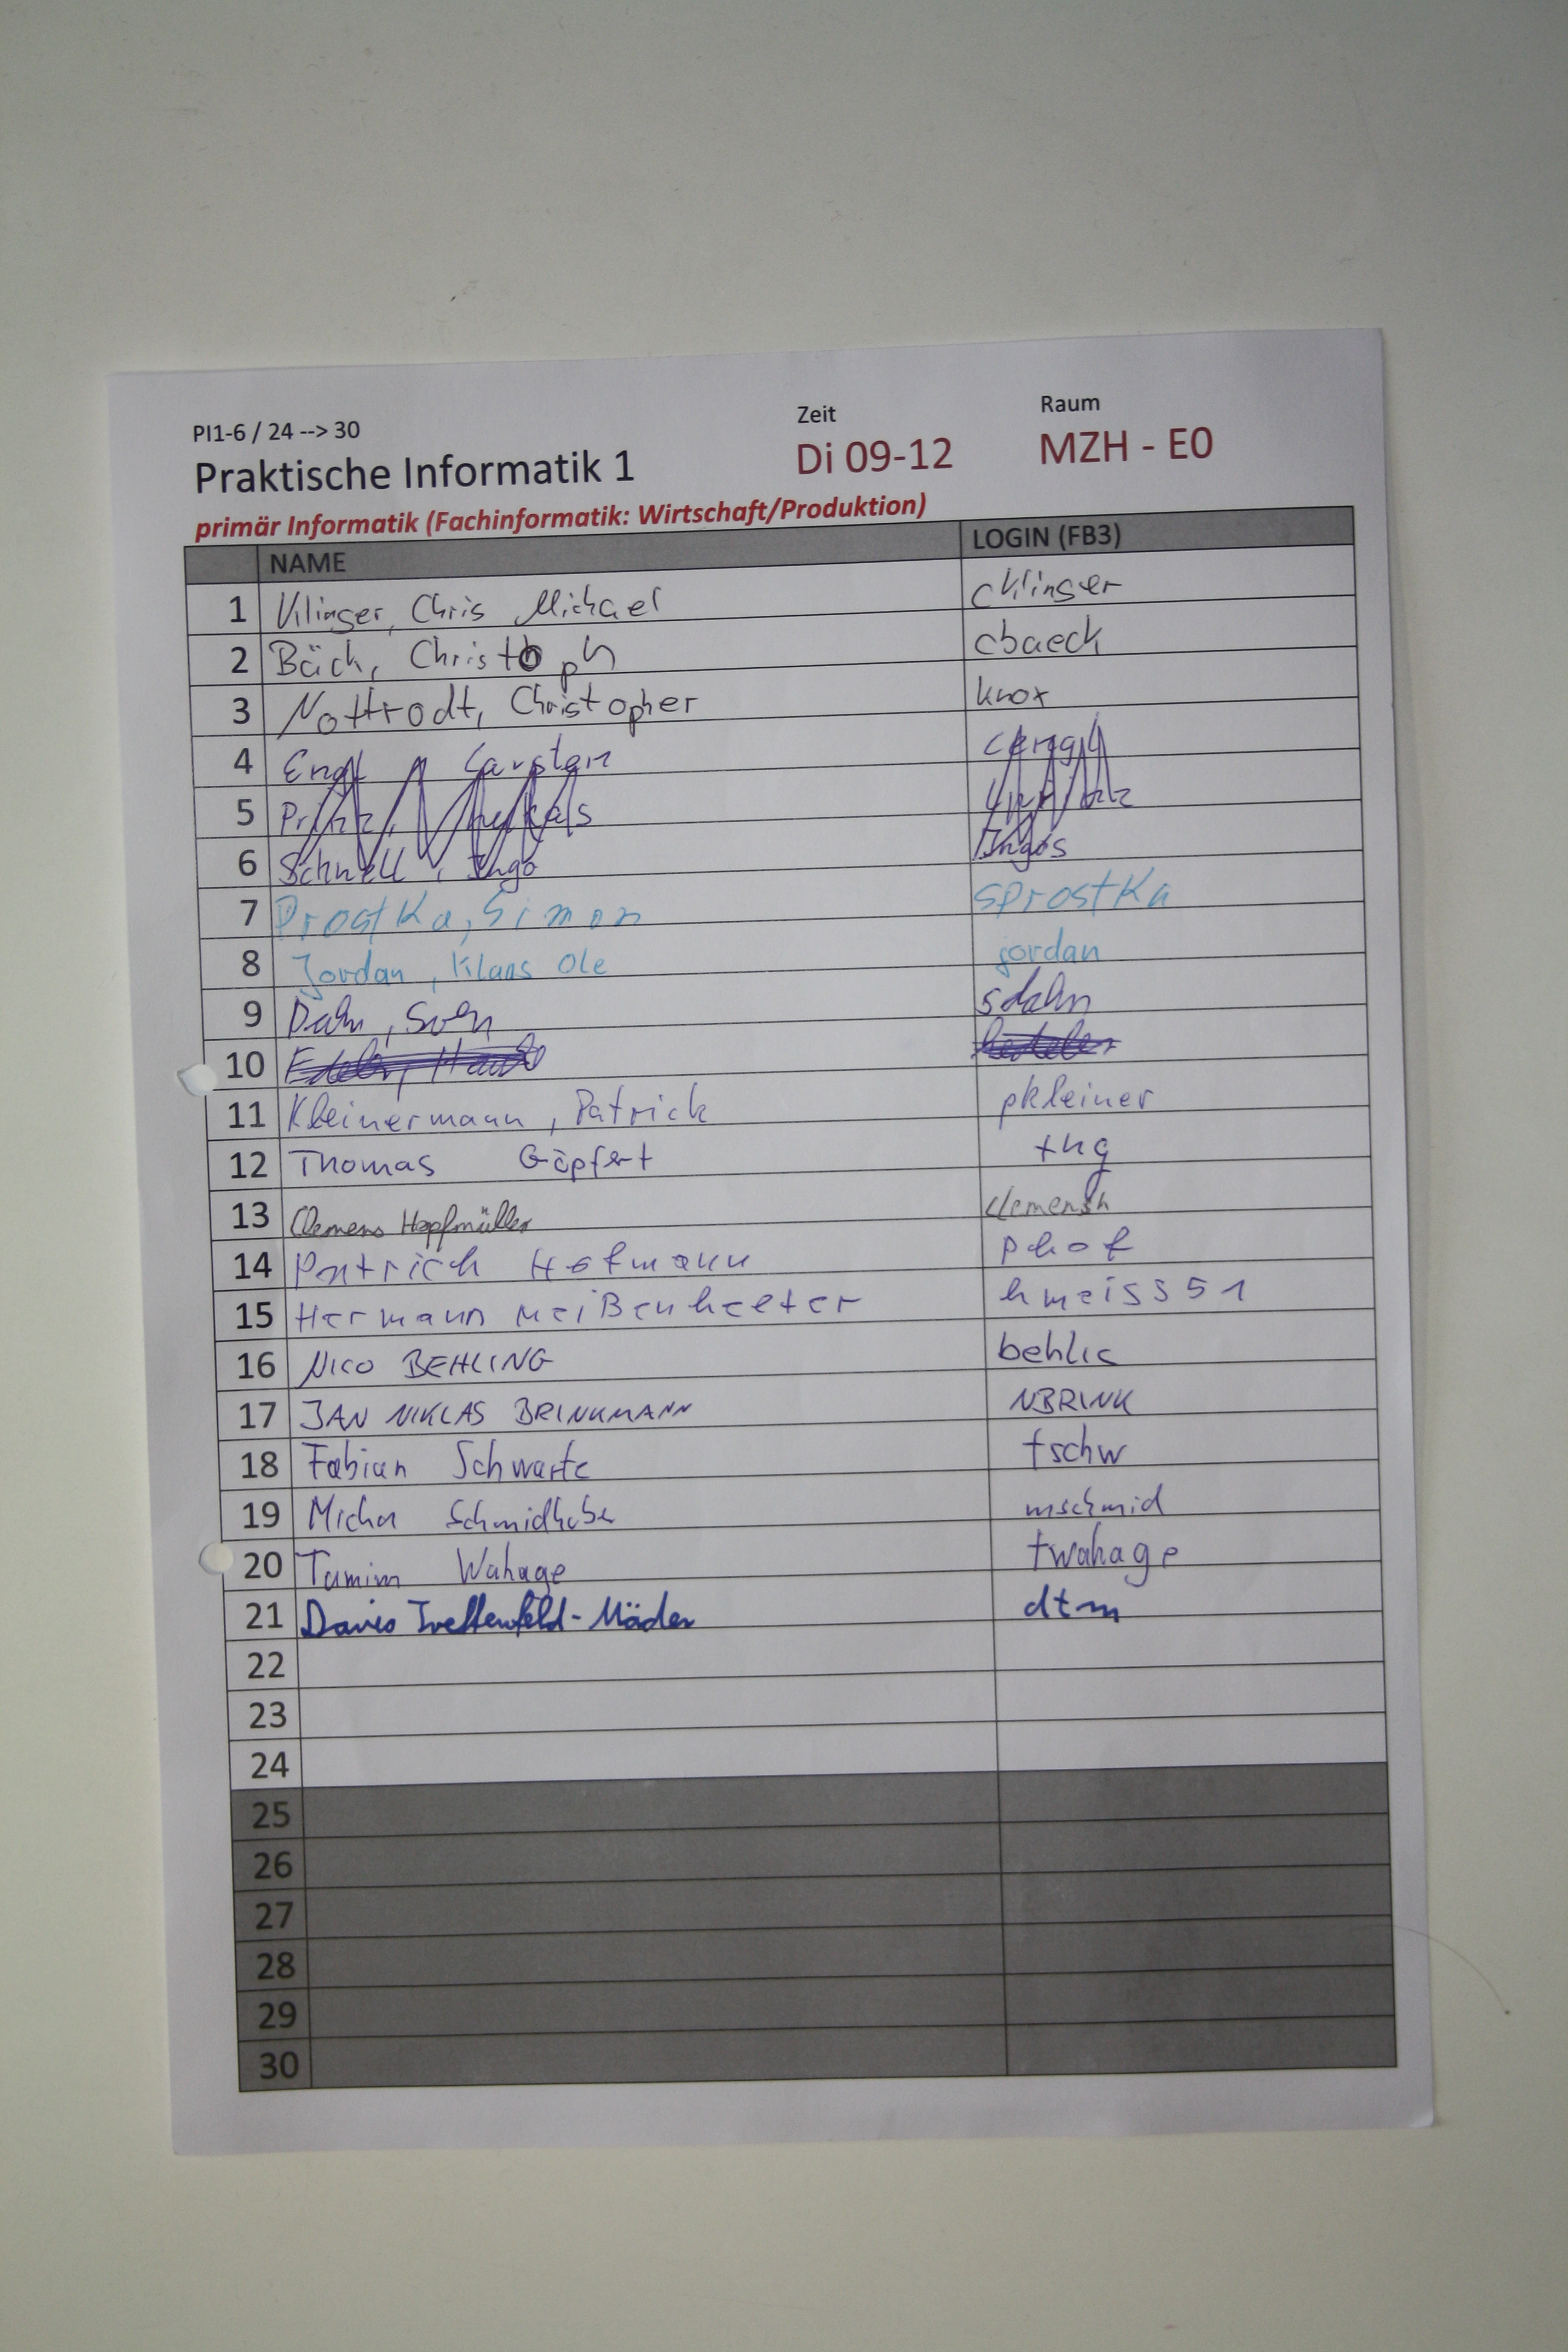 PI1-6 / 24 --> 30 Zeit Raum
Praktische Informatik 1 Di 09-12 MZH - E0
primär Informatik (Fachinformatik: Wirtschaft/Produktion)
NAME LOGIN (FB3)
1 Klinger, Chris Michael cklinger
2 Bäck, Christoph cbaeck
3 Nottrodt, Christopher knox
4 Carsten
5
6 Schnell, Ingo Ingos
7 Prostka, Simon sprostka
8 Jordan, Klaas Ole jordan
9 Dahn, Sven sdahn
10
11 Kleinermann, Patrick pkleiner
12 Thomas Göpfert thg
13 Clemens Hopfmüller clemensh
14 Patrick Hofmann phof
15 Hermann Meißenhelter hmeiss51
16 NICO BEHLING behlic
17 JAN NIKLAS BRINKMANN NBRINK
18 Fabian Schwarte fschw
19 Micha Schmidhuber mschmid
20 Tamim Wahage twahage
21 dtm
22
23
24
25
26
27
28
29
30